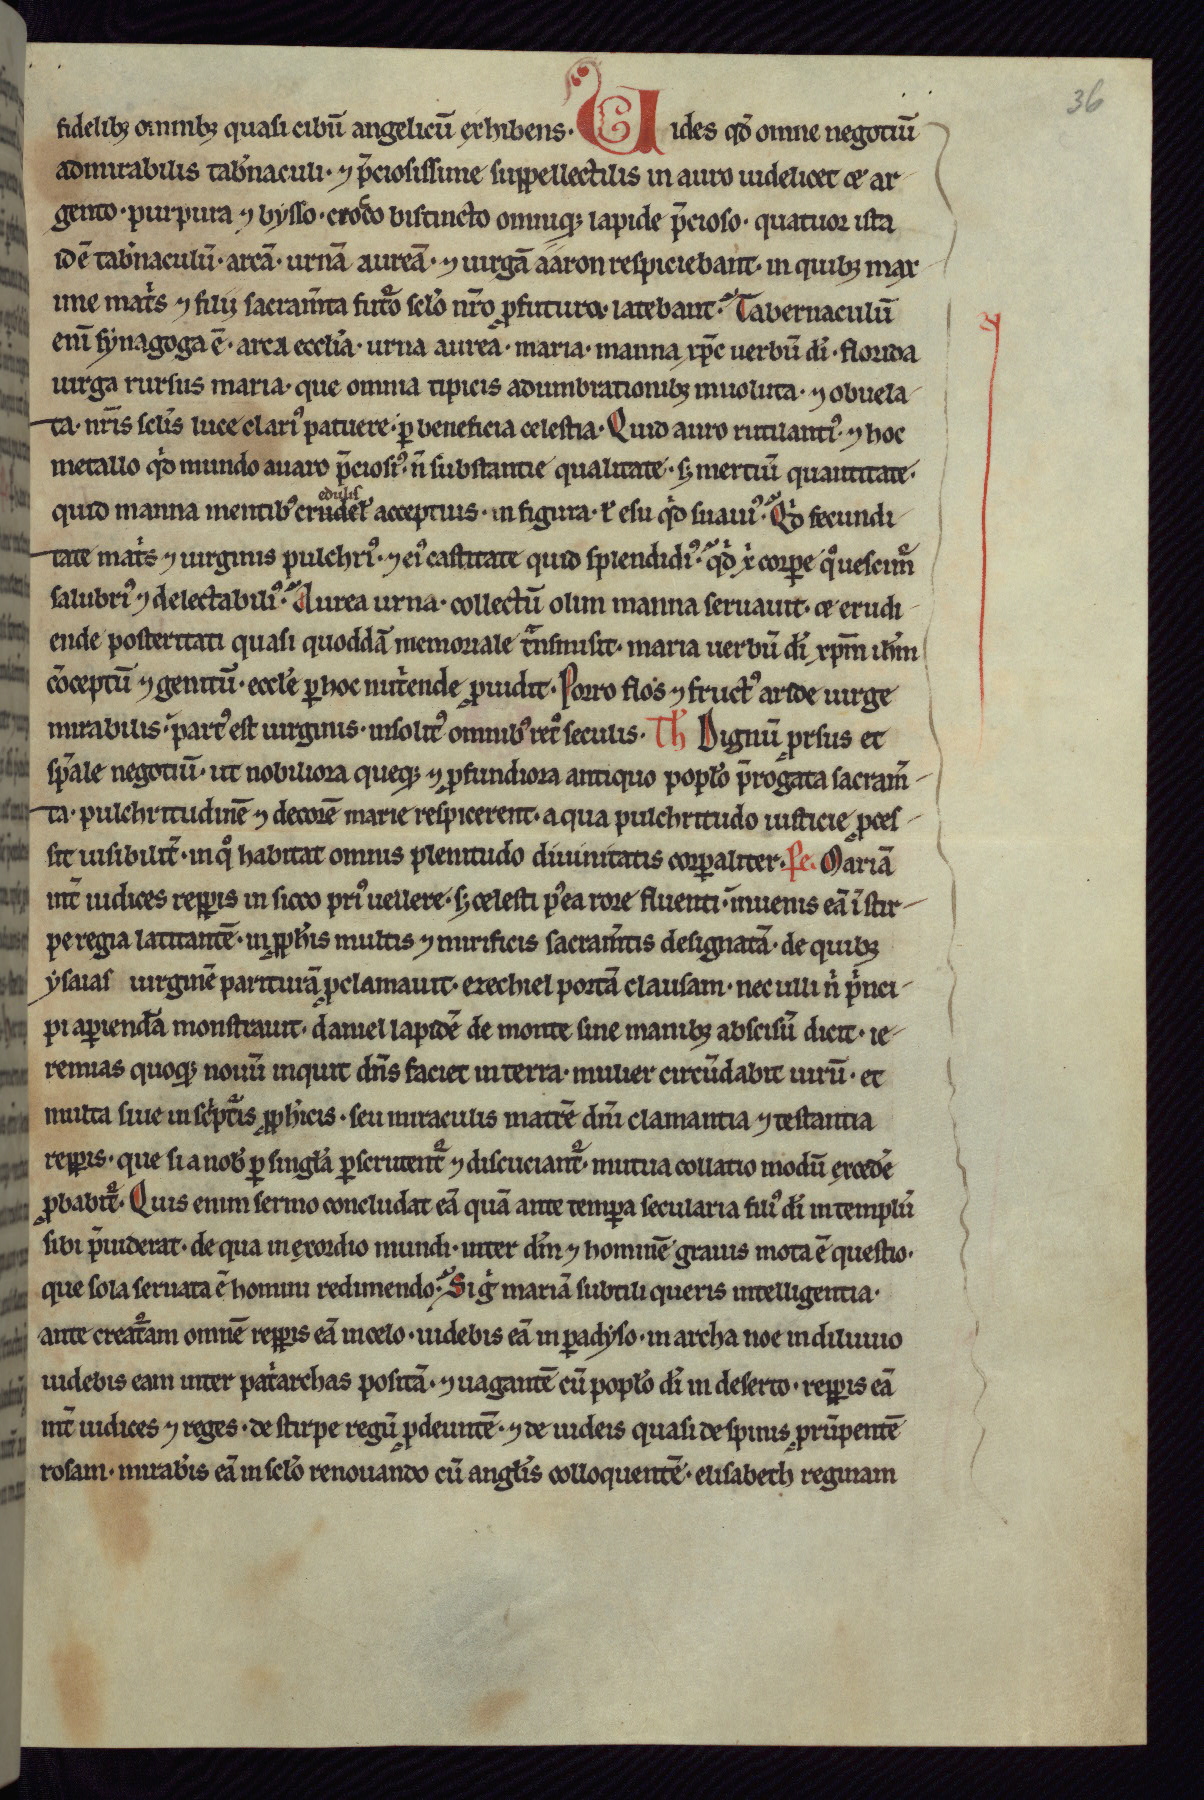 36
fidelibꝫ omnibꝫ quasi cibū angelicū exhibens· Uides qđ omne negotiū
admirabilis tab̓naculi· ⁊ p̄ciosissime suppellectilis in auro uidelicet & ar
gento· purpura ⁊ bysso· cocco bistincto omniqꝫ lapide p̄cioso· quatuor ista
id ē tab̓naculū· arcā· urnā aureā· ⁊ uirgā aaron respiciebant· in quibꝫ max
ime mat̓s ⁊ filij sacram̄ta fut᷑o sclo nr̄o ꝓfutura latebant· Tabernaculū
enī synagoga ē· arca ecclīa· urna aurea· maria· manna xp̄c uerbū dī· florida
uirga rursus maria· que omnia tipicis adumbrationibꝫ inuoluta· ⁊ obuela
ta· nr̄is sclis luce clariꝰ patuere· ꝑ beneficia celestia· Quid auro rutilantiꝰ· ⁊ hoc
metallo qđ mundo auaro p̄ciosiꝰ· n̄ substantie qualitate· sꝫ mertiū quantitate·
edulis
quid manna mentibꝰ crudel̓ acceptius· in figura· ł esu qđ suauiꝰ· Qđ fecundi
tate mat̓s ⁊ uirginis pulchriꝰ· ⁊ eiꝰ castitate quid splendidiꝰ· qđ x̓ corꝑe q̓escim᷑
salubriꝰ ⁊ delectabiliꝰ· Aurea urna· collectū olim manna seruauit· & erudi
ende posteritati quasi quoddā memoriale t̄nsmisit· maria uerbū dī xp̄m ih̄m
c̄oceptū ⁊ genitū· eccl̄e ꝑ hoc nut̓ende ꝓuidit· Porro flos ⁊ fructꝰ aride uirge
mirabilis· partꝰ est uirginis· insolitꝰ omnibꝰ ret᷑ seculis· Th Dignū ꝓrsus et
sp̄ale negotiū· ut nobiliora queqꝫ ⁊ ꝓfundiora antiquo poplo p̄rogata sacram̄
ta· pulchritudinē ⁊ decorē marie respicerent· a qua pulchritudo iusticie ꝓces
sit uisibilit̓· in q̓ habitat omnis plenitudo diuinitatis corꝑaliter· Pe· Mariā
int̓ iudices repꝑis in sicco pri̓ uellere· sꝫ celesti p̓ea rore fluenti· inuenis eā ī stir
pe regia latitantē· in ꝓph̓is multis ⁊ mirificis sacram̄tis designatā· de quibꝫ
ysaias uirginē parituram ꝓclamauit· ezechiel portā clausam· nec ulli n̓ p̓nci
pi aꝑiendā monstrauit· daniel lapidē de monte sine manibꝫ abscisū dicit· ie
remias quoqꝫ nouū inquit dn̄s faciet in terra· mulier circūdabit uirū· et
multa siue in sc̓pt᷑is ꝓph̓icis· seu miraculis matrē dn̄i clamantia ⁊ testantia
repꝑis· que si a nob̓ ꝑ singl̄a ꝑscrutent᷑ ⁊ discuciant᷑· mutua collatio modū excedē
ꝓbabit᷑· Quis enim sermo concludat eā quā ante temꝑa secularia filiꝰ dī in templū
sibi p̄uiderat· de qua in exordio mundi· inter dm̄ ⁊ hominē grauis mota ē questio·
que sola seruata ē homini redimendo· Sig̓ mariā subtili queris intelligentia·
ante creat᷑am omnē repꝑis eā in celo· uidebis eā in ꝑadyso· in archa noe in diluuio
uidebis eam inter pat̓archas positā· ⁊ uagantē cū poplo dī in deserto· repꝑis eā
int̓ iudices ⁊ reges· de stirpe regū ꝓdeuntē· ⁊ de iudeis quasi de spinis ꝓrūpentē
rosam· mirabis eā in sclo renouando cū anglis colloquentē· elisabeth reginam